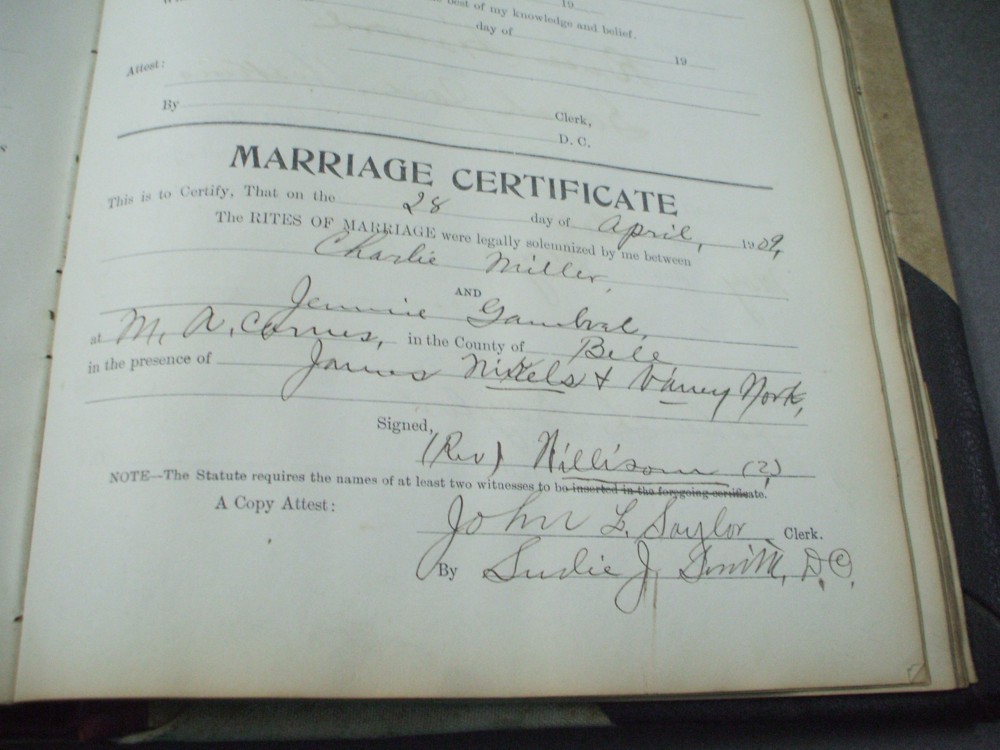 19
best of my knowledge and belief.
day of 19
Attest:
Clerk,
By
D. C.
MARRIAGE CERTIFICATE
This is to Certify, That on the 28 day of April, 1909,
The RITES OF MARRIAGE were legally solemnized by me between
Charlie Miller,
AND
Jennie Gambrel,
at M. A. Carnes, in the County of Bell
in the presence of James Nixels & Vancy York,
Signed,
(Rev) Willison (?)
NOTE—The Statute requires the names of at least two witnesses to be inserted in the foregoing certificate.
A Copy Attest:
John L. Saylor Clerk.
By Sudie J. Smith, D.C.